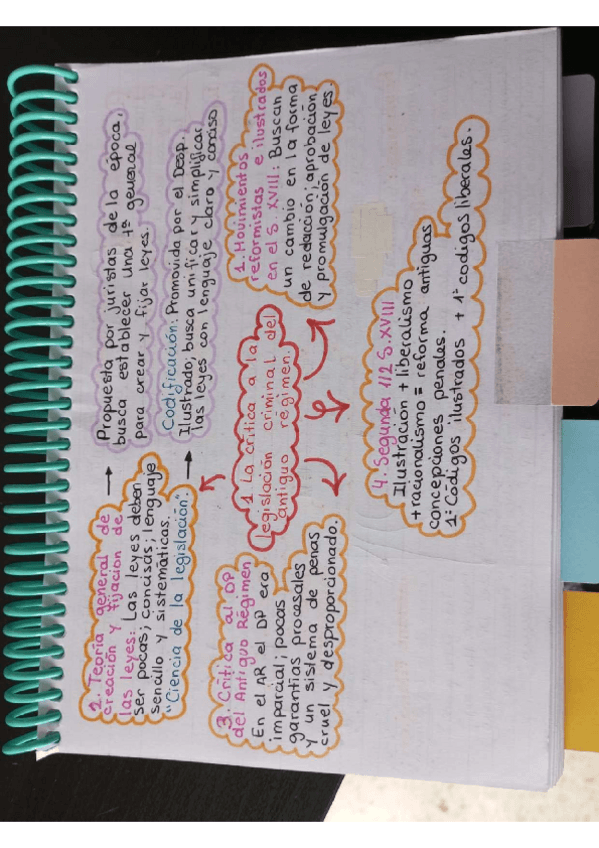 1 La crítica a la
legislación criminal del
antiguo régimen.
1. Movimientos
reformistas e ilustrados
en el S. XVIII: Buscan
un cambio en la forma
de redacción; aprobación
y promulgación de leyes
2. Teoría general de
creación y fijación de
las leyes: Las leyes deben
ser pocas; concisas; lenguaje
sencillo y sistemáticas.
"Ciencia de la legislación".
Propuesta por juristas de la época,
busca establecer una tª general
para crear y fijar leyes.
Codificación: Promovida por el Desp.
Ilustrado; busca unificar y simplificar
las leyes con lenguaje claro y conciso
3. Crítica al DP
del Antiguo Régimen
En el AR el DP era
imparcial; pocas
garantías procesales
y un sistema de penas
cruel y desproporcionado.
4. Segunda 1/2 S. XVIII
Ilustración + liberalismo
+ racionalismo = reforma antiguas
concepciones penales.
1º Códigos ilustrados + 1º codigos liberales.